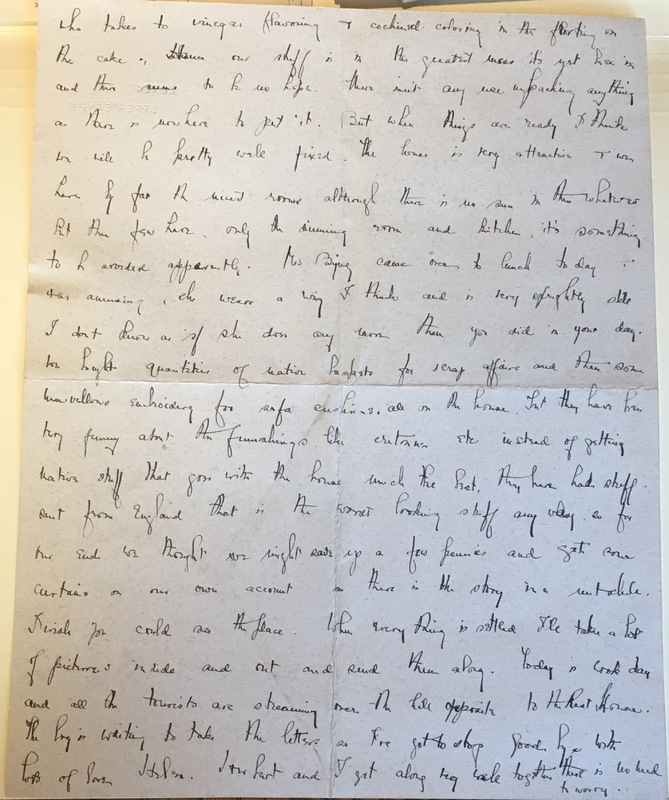 who takes to vinegar flavoring & cochineal coloring in the frosting on
the cake. our stuff is in the greatest mess it's yet been in
and there seems to be no hope. There isn't any use unpacking anything
as there is nowhere to put it. But when things are ready I think
we will be pretty well fixed. The house is very attractive & we
have by far the nicest rooms although there is no sun in them whatever
But then few have, only the dinning room and kitchen, it's something
to be avoided apparently. Mrs came over to lunch today &
was amusing, she wears a wig I think and is very sprightly still
I don't know as if she does any more than you did in your day.
we bought quantities of native baskets for scrap affairs and then some
marvellous embroidery for sofa cushions, all on the house. But they have been
very funny about the furnishings like cretonnes etc instead of getting
native stuff that goes with the house much the best, they have had stuff
sent from England that is the worst looking stuff any way. so for
our end we thought we might save up a few pennies and get some
curtains on our own account so there is the story in a nutshell.
I wish you could see the place. When every thing is settled I'll take a lot
of pictures inside and out and send them along. Today is boat day
and all the tourists are streaming over the hill opposite to the Rest House.
The boy is waiting to take the letters so I've got to stop Good bye with
lots of love Helen. and I get along very well together there is no need
to worry.